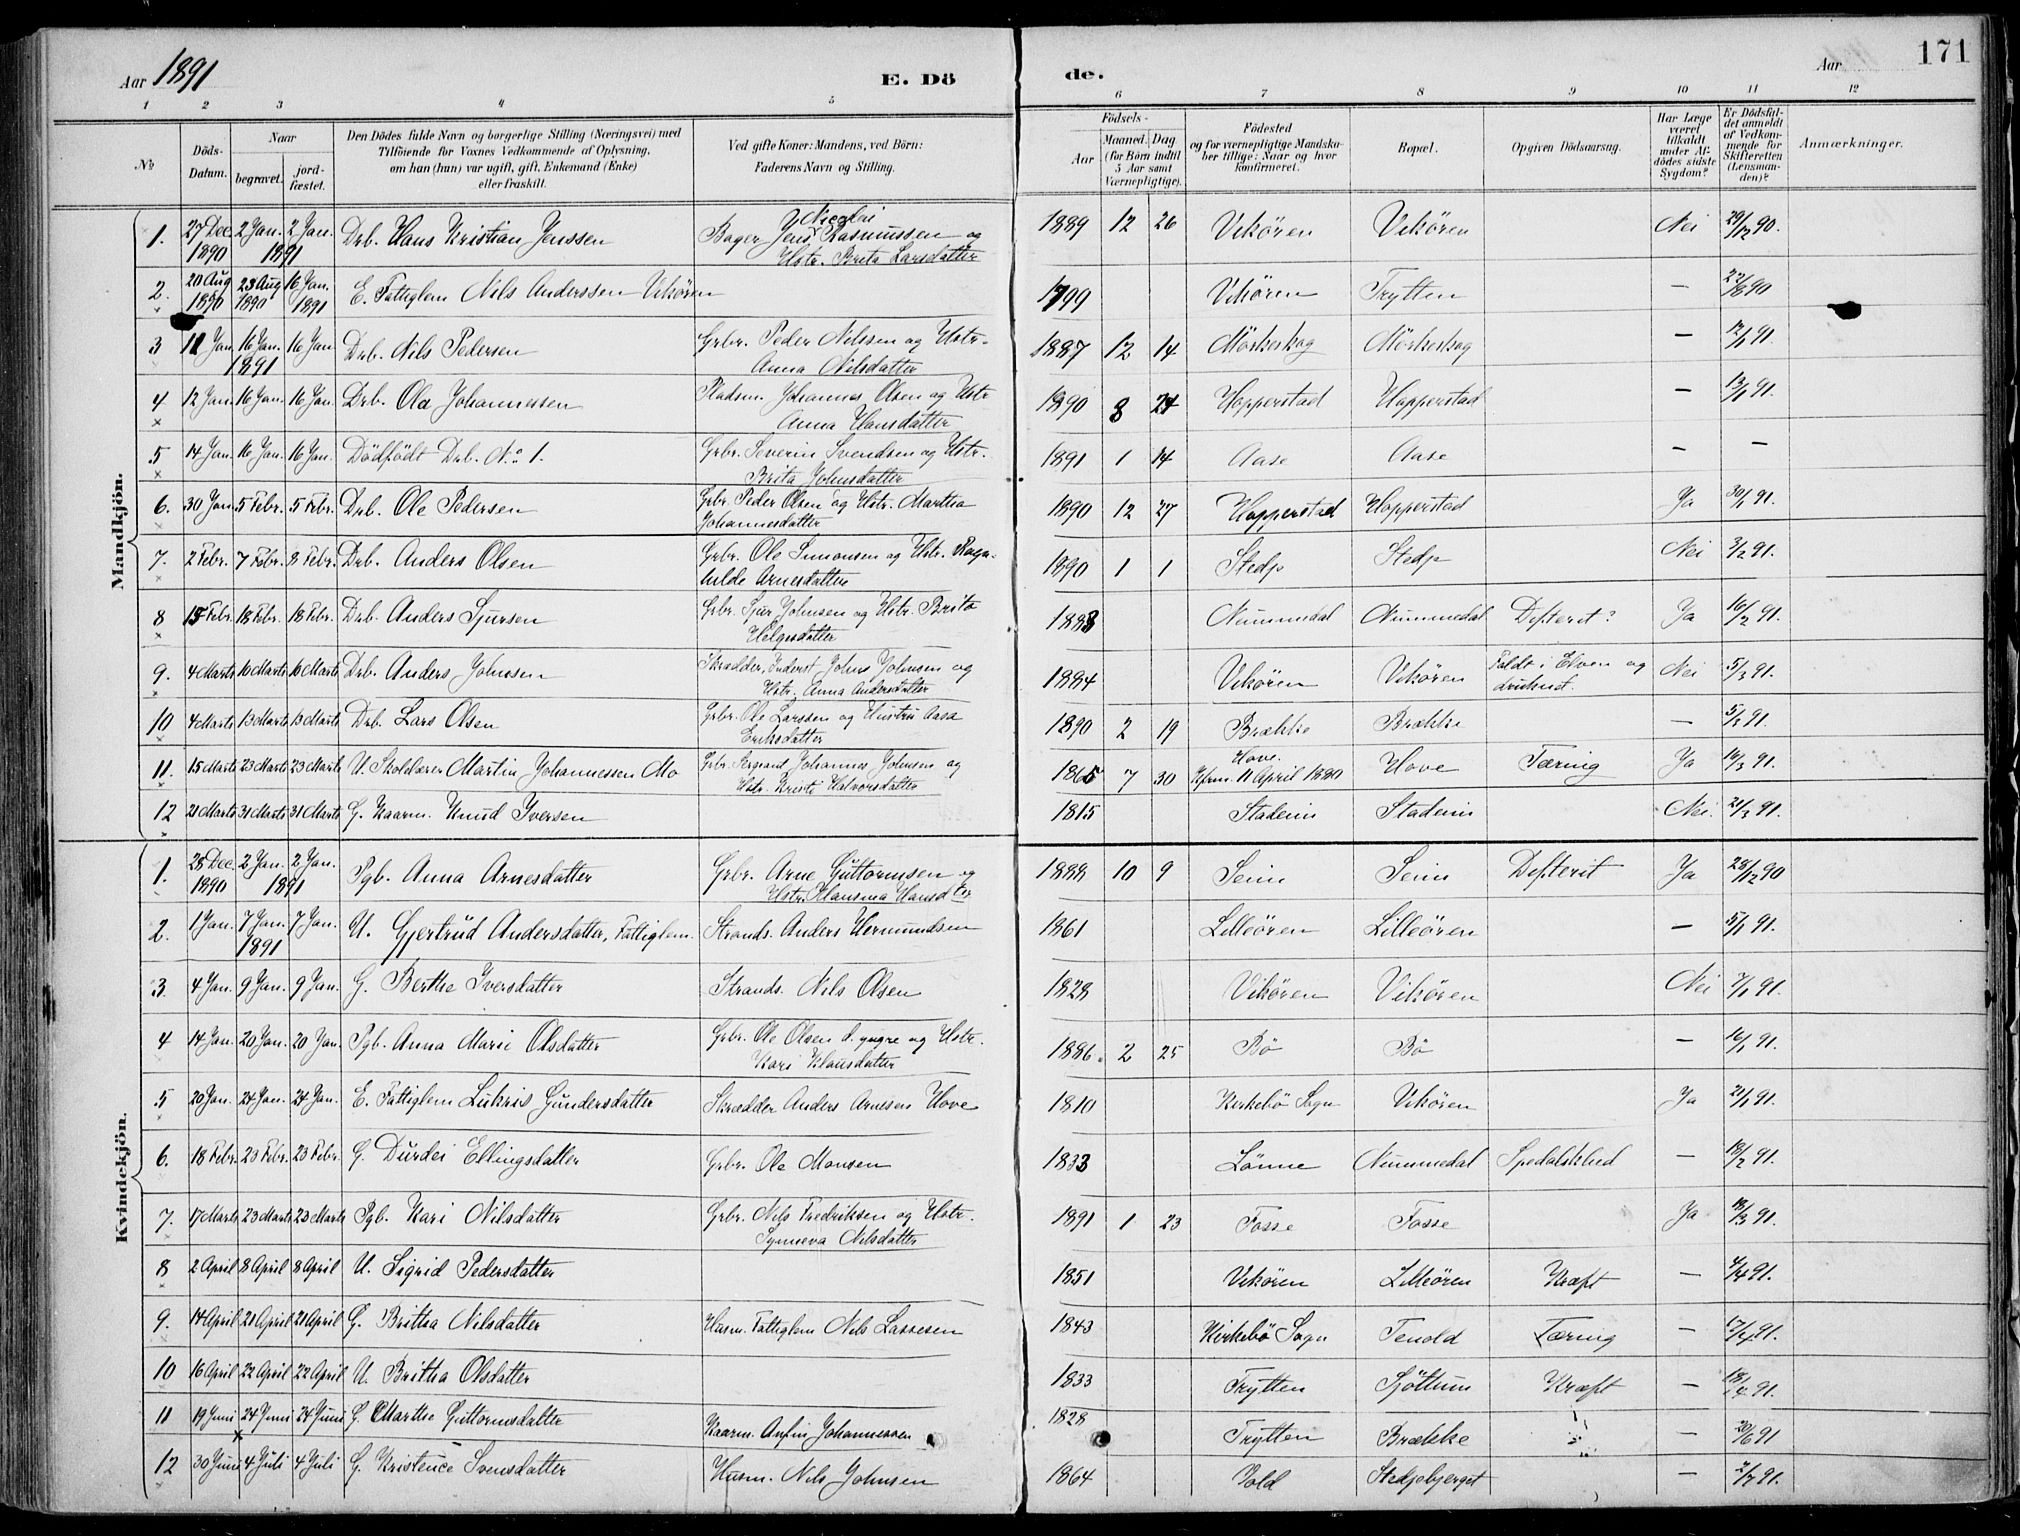 Aar 1891
E. Dö
de.
Aar
171
1 2 3 4 5 6 7 8 9 10 11 12
No
Döds-Datum.
Naar
begravet.
jordfæstet.
Den Dödes fulde Navn og borgerlige Stilling (Næringsvei) med
Tilföiende for Voxnes Vedkommende af Oplysning,
om han (hun) var ugift, gift, Enkemand (Enke)
eller fraskilt.
Ved gifte Koner: Mandens, ved Börn:
Faderens Navn og Stilling.
Födsels-
Aar
Maaned. Dag
(for Börn indtil
5 Aar samt
Værnepligtige).
Födested
og for værnepligtige Mandska-
ber tillige: Naar og hvor
konfirmeret.
Bopæl.
Opgiven Dödsaarsag.
Har Læge
været
tilkaldt
under Af-
dödes sidste
Sygdom?
Er Dödsfal-
det anmeldt
af Vedkom-
mende for
Skifteretten
(Lensman-
den)?
Anmærkninger.
Mandkjön.
1. 27 Dec. 1890 2 Jan. 2 Jan. 1891 Drb. Hans Kristian Jenssen Bager Jens Nicolai Rasmussen og Hstr. Brita Larsdatter 1889 12 26 Vikören Vikören Nei 29/12 90.
2. 20 Aug 1890 23 Aug 1890 16 Jan. 1891 E. Fattiglem Nils Anderssen Vikören 1799 Vikören Trytten — 22/8 90
3 11 Jan. 16 Jan. 1891 16 Jan Drb. Nils Pedersen Grbr. Peder Nilssen og Hstr. Anna Nilsdatter 1887 12 14 Mörkeskog Mörkeskog — 12/1 91.
4 12 Jan. 16 Jan. 16 Jan. Drb. Ola Johannessen Pladsm. Johannes Olsen og Hstr Anna Hansdatter 1890 8 24 Hopperstad Hopperstad — 13/1 91.
5 14 Jan. 16 Jan. 16 Jan. Dödfödt Drb. No 1. Grbr. Severin Svendsen og Hstr. Brita Johnsdatter 1891 1 14 Aase Aase — —
6. 30 Jan. 5 Febr. 5 Febr. Drb. Ole Pedersen Grbr. Peder Olsen og Hstr. Martha Johannesdatter 1890 12 27 Hopperstad Hopperstad Ja 30/1 91.
7. 2 Febr. 7 Febr. 8 Febr. Drb. Anders Olsen Grbr. Ole Simonsen og Hstr. Ragnhilde Arnesdatter 1890 1 1 Stedje Stedje Nei 3/2 91.
8 15 Febr. 18 Febr. 18 Febr. Drb. Anders Sjursen Grbr. Sjur Johnsen og Hstr. Brita Helgesdatter 1883 Nummedal Nummedal Difterit? Ja 16/2 91.
9. 4 Marts 10 Marts 10 Marts Drb. Anders Johnssen Skrædder, Inderst Johns Johnsen og Hstr. Anna Andersdatter 1884 Vikören Vikören Faldt i Elven og druknet. Nei 5/3 91.
10 4 Marts 13 Marts 13 Marts Drb. Lars Olsen Grbr. Ole Larssen og Hustru Aasa Eriksdatter 1890 2 19 Brække Brække — 5/3 91.
11. 15 Marts 23 Marts 23 Marts U. Skolelærer Martin Johannessen Mo Grbr. Sergeant Johannes Johnsen og Hstr. Kristi Halvorsdatter 1865 7 30 Hove. Kfrm. 11 April 1880 Hove Tæring Ja 19/3 91.
12 21 Marts 31 Marts 31 Marts G. Kaarm. Knud Iversen 1815 Stadein Stadein Nei. 21/3 91.
Kvindekjön.
1. 28 Dec. 1890 2 Jan. 2 Jan. 1891 Pgb. Anna Arnesdatter Grbr. Arne Guttormsen og Hstr. Hansina Hansdter 1888 10 9 Seim Seim Difterit Ja 28/12 90
2. 1 Jan. 7 Jan. 1891 7 Jan. U. Gjertrud Andersdatter, Fattiglem. Strands. Anders Hermundsen 1861 Lilleören Lilleören — 5/1 91.
3. 4 Jan. 9 Jan. 9 Jan. G. Berthe Iversdatter Strands. Nils Olsen 1828 Vikören Vikören Nei 7/1 91.
4 14 Jan. 20 Jan. 20 Jan. Pgb. Anna Marie Olsdatter Grbr. Ole Olsen d. yngre og Hstr. Kari Klausdatter 1886. 2 25 Bö Bö — 16/1 91.
5 20 Jan. 24 Jan. 24 Jan. E. Fattiglem Lukris Gundersdatter Skrædder Anders Arnesen Hove 1810 Kirkebö Sogn Vikören Ja 21/1 91.
6. 18 Febr. 23 Febr. 23 Febr. G. Durdei Ellingsdatter Grbr. Ole Monsen 1833 Lönne Nummedal Spedalskhed — 18/2 91.
7. 17 Marts 23 Marts 23 Marts Pgb. Kari Nilsdatter Grbr. Nils Fredriksen og Hstr. Synneva Nilsdatter 1891 1 23 Fosse Fosse Ja 18/3 91.
8 2 April 8 April 8 April U. Sigrid Pedersdatter 1851 Vikören Lilleören Kræft — 4/4 91.
9. 14 April 21 April 21 April G. Britha Nilsdatter Husm. Fattiglem Nils Lassesen 1843 Kirkebö Sogn Tenold Tæring — 17/4 91.
10 16 April 22 April 22 April U. Britha Olsdatter 1833 Trytten Sjöttun Kræft — 18/4 91.
11 19 Juni 24 Juni 24 Juni G. Marthe Guttormsdatter Kaarm. Anfin Johannessen 1828 Trytten Brække 20/6 91
12 30 Juni 4 Juli 4 Juli G. Kristence Svensdatter Husm. Nils Johnsen 1864 Vold Stedjebjerget — 2/7 91.